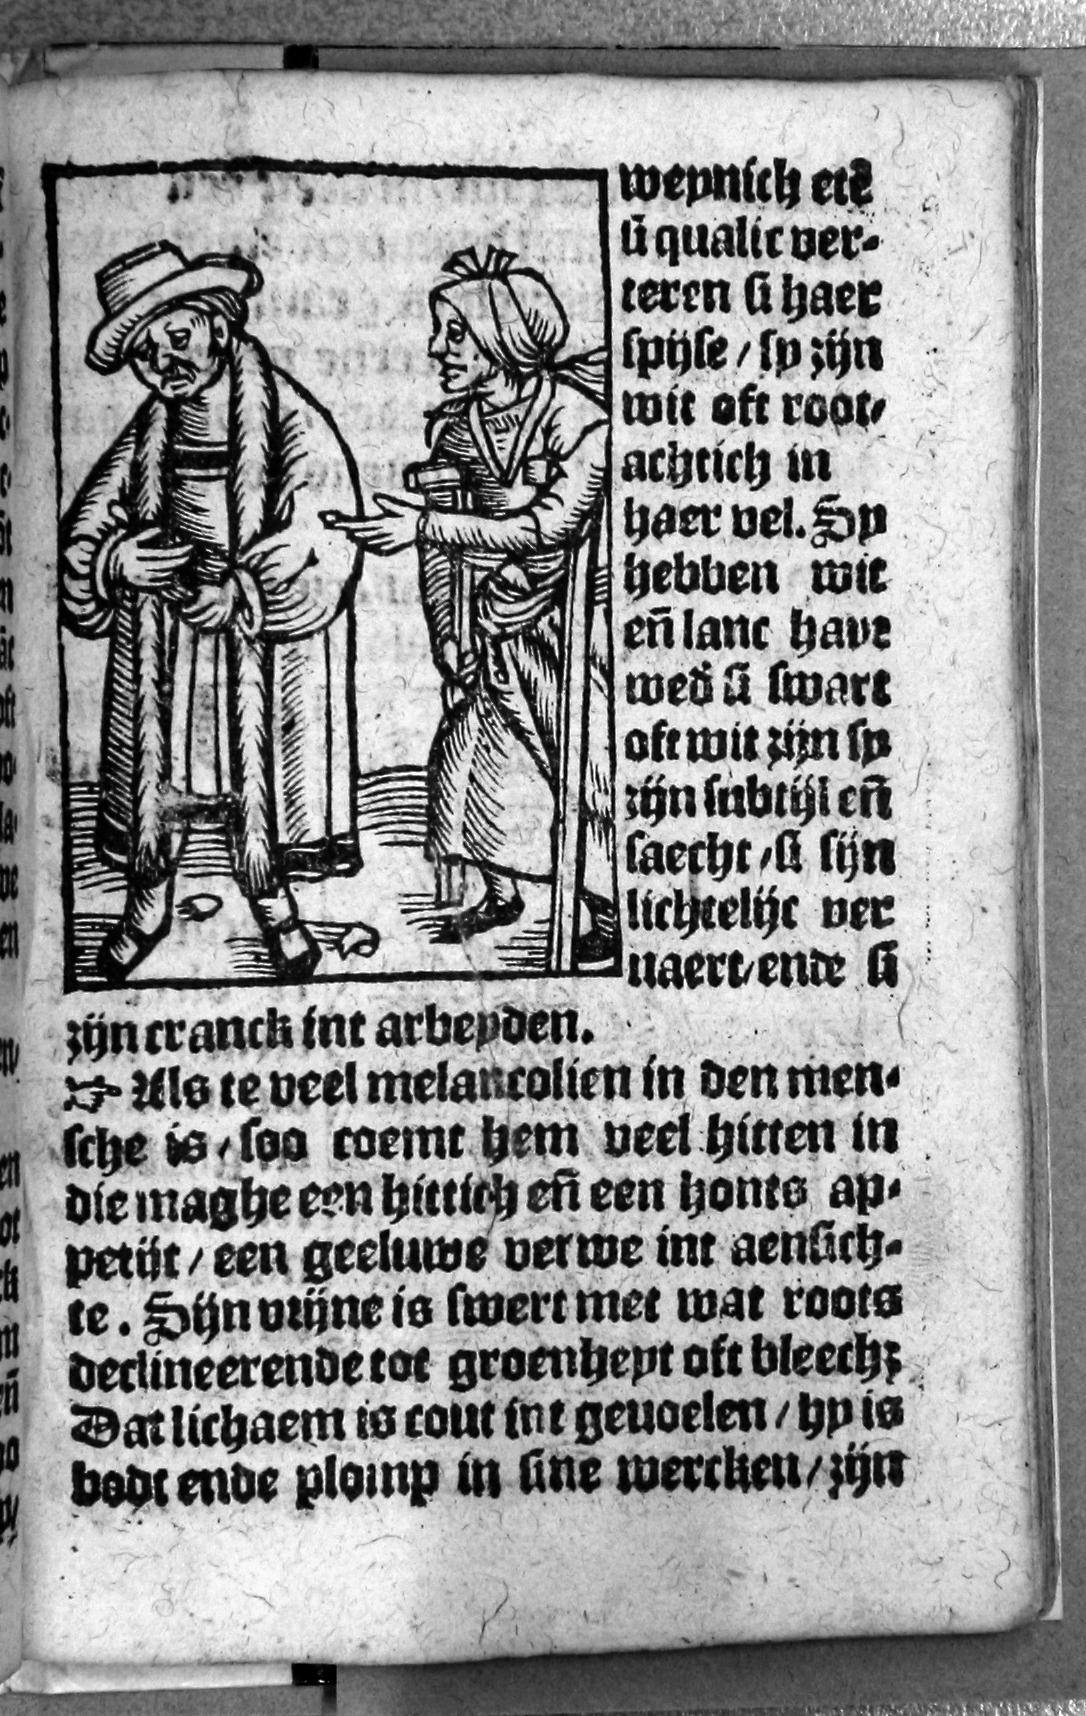 weynich etē
ū qualic ver-
teren si haer
spijse / sy zijn
wit oft root/
achtich in
haer vel. Sy
hebben wit
eñ lanc havt
wed̄ si swart
oft wit zijn sy
zijn subtijl eñ
saecht / si sijn
lichtelijc ver
naert/ ende si
zijn cranck int arbeyden.
☞ Als te veel melancolien in den men-
sche is / soo coemt hem veel hitten in
die maghe een hittich eñ een honts ap-
petijt / een geeluwe verwe int aensich-
te. Sijn vrijne is swert met wat roots
declineerende tot groenheyt oft bleechz
Dat lichaem is cout int gevoelen / hy is
bodt ende plomp in sine wercken / zijn